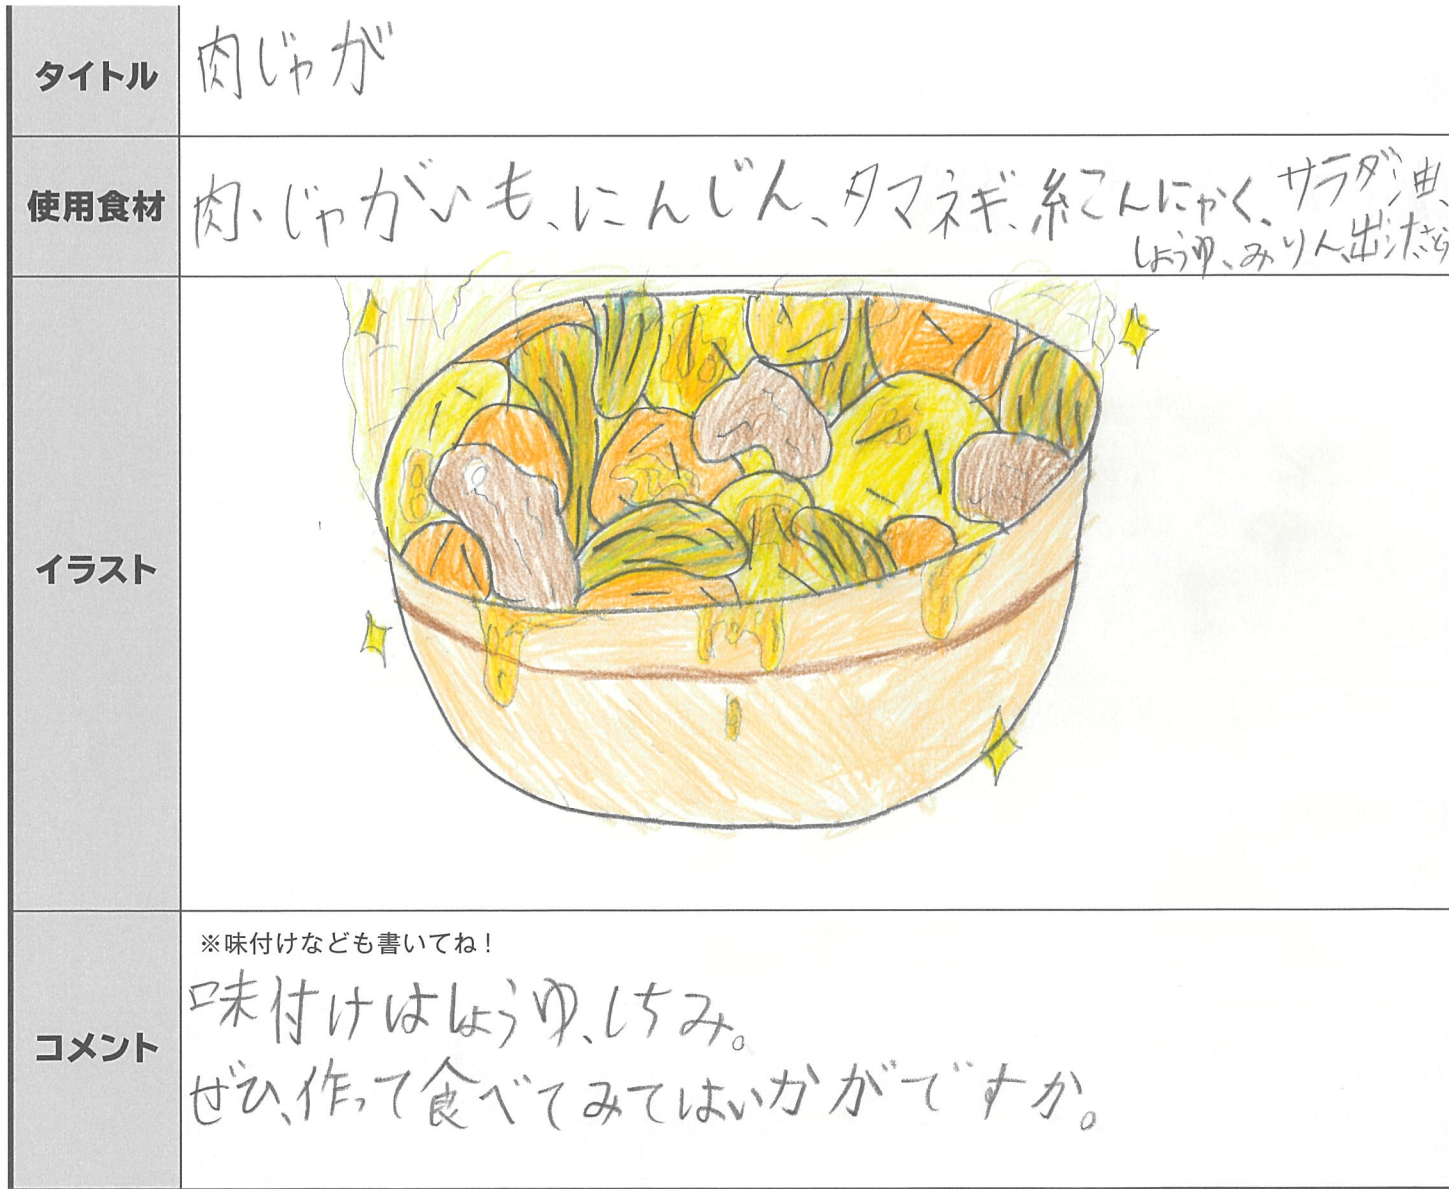 タイトル
肉じゃが
使用食材
肉、じゃがいも、にんじん、タマネギ、糸こんにゃく、サラダ油、
しょうゆ、みりん、出汁、さとう
イラスト
コメント
※味付けなども書いてね！
味付けはしょうゆ、しちみ。
ぜひ、作って食べてみてはいかがですか。